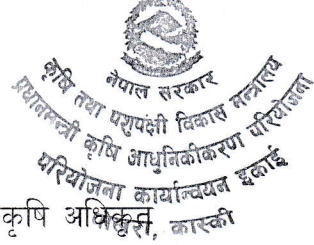 नेपाल सरकार
कृषि तथा पशुपंक्षी विकास मन्त्रालय
प्रधानमन्त्री कृषि आधुनिकीकरण परियोजना
परियोजना कार्यान्वयन इकाई
कास्की
कृषि अधिकृत